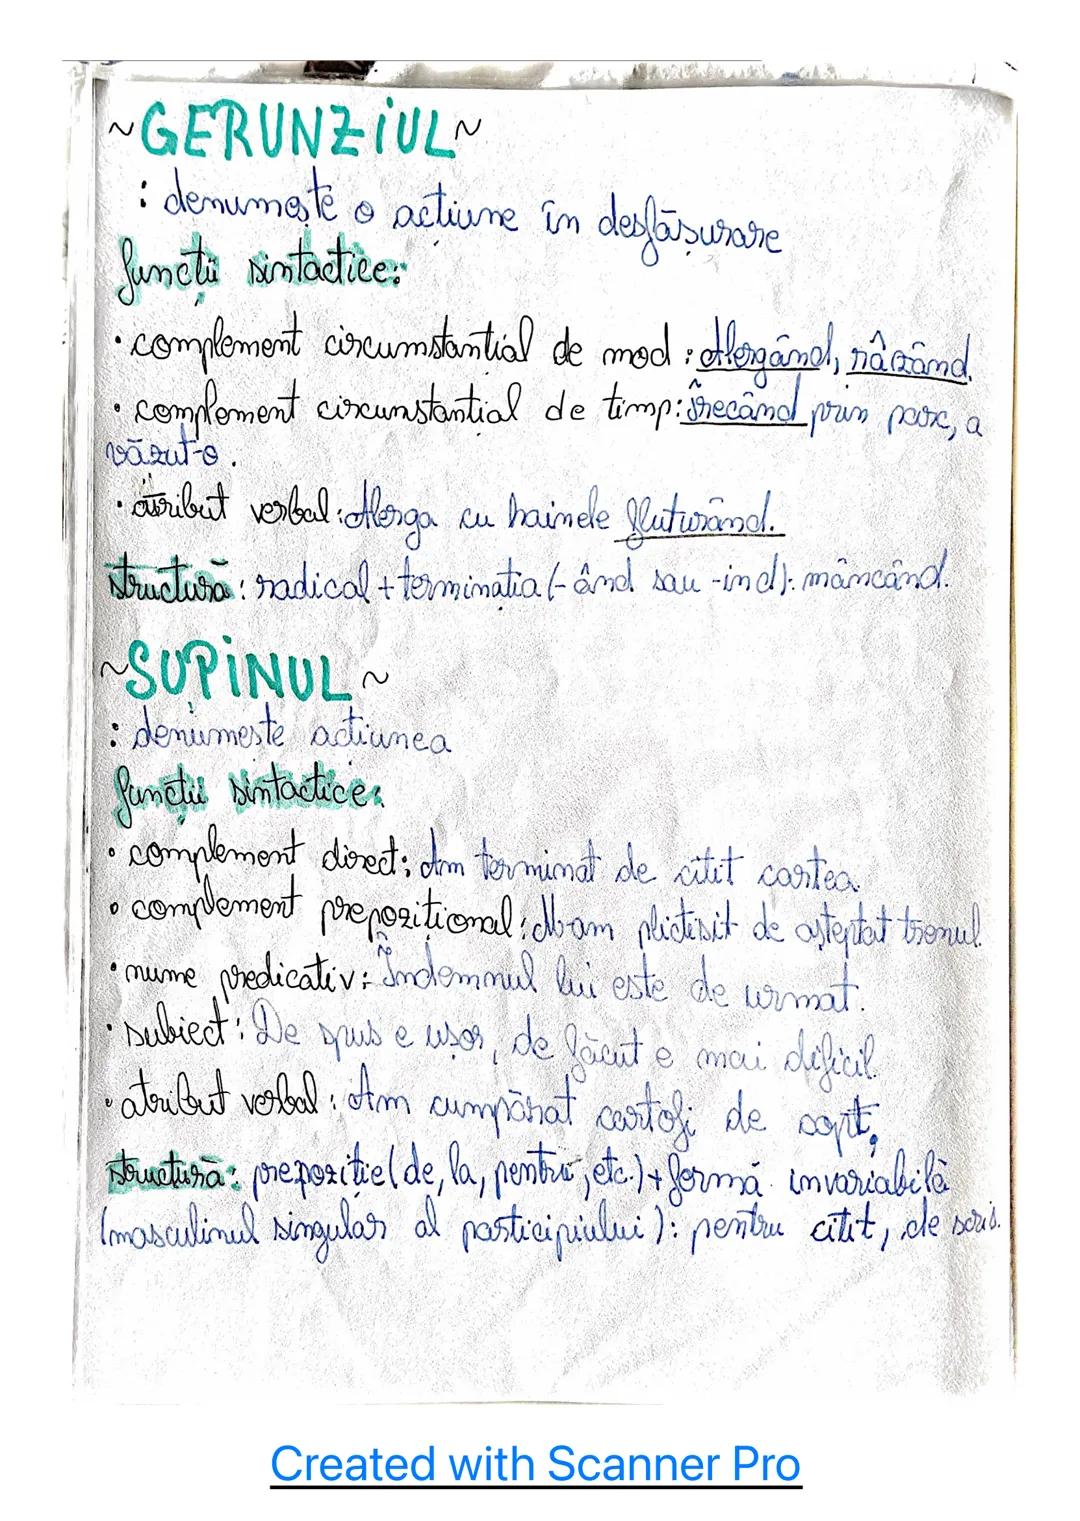 ~GERUNZIUL~
: denumește o acțiune în desfășurare
funcții sintactice:
• complement circumstanțial de mod : Alergând, râzând.
• complement circumstanțial de timp: Trecând prin parc, a
văzut-o.
• atribut verbal: Alerga cu hainele fluturând.
structură : radical + terminația (-ând sau -ind): mâncând.
~SUPINUL~
: denumește acțiunea
funcții sintactice:
• complement direct: Am terminat de citit cartea.
• complement prepozițional: M-am plictisit de așteptat trenul.
• nume predicativ: Îndemnul lui este de urmat.
• subiect: De spus e ușor, de făcut e mai dificil.
• atribut verbal: Am cumpărat cartofi de copt.
structură: prepoziție (de, la, pentru, etc.) + formă invariabilă
(masculinul singular al participiului): pentru citit, de scris.
Created with Scanner Pro